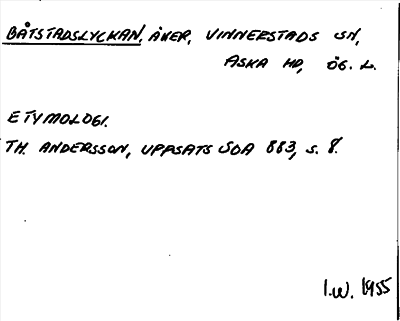 BÅTSTADSLYCKAN, ÅKER, VINNERSTADS SN,
ASKA HD, ÖG. L.
ETYMOLOGI.
TH. ANDERSSON, UPPSATS SOA 883, s. 8.
I.W. 1955